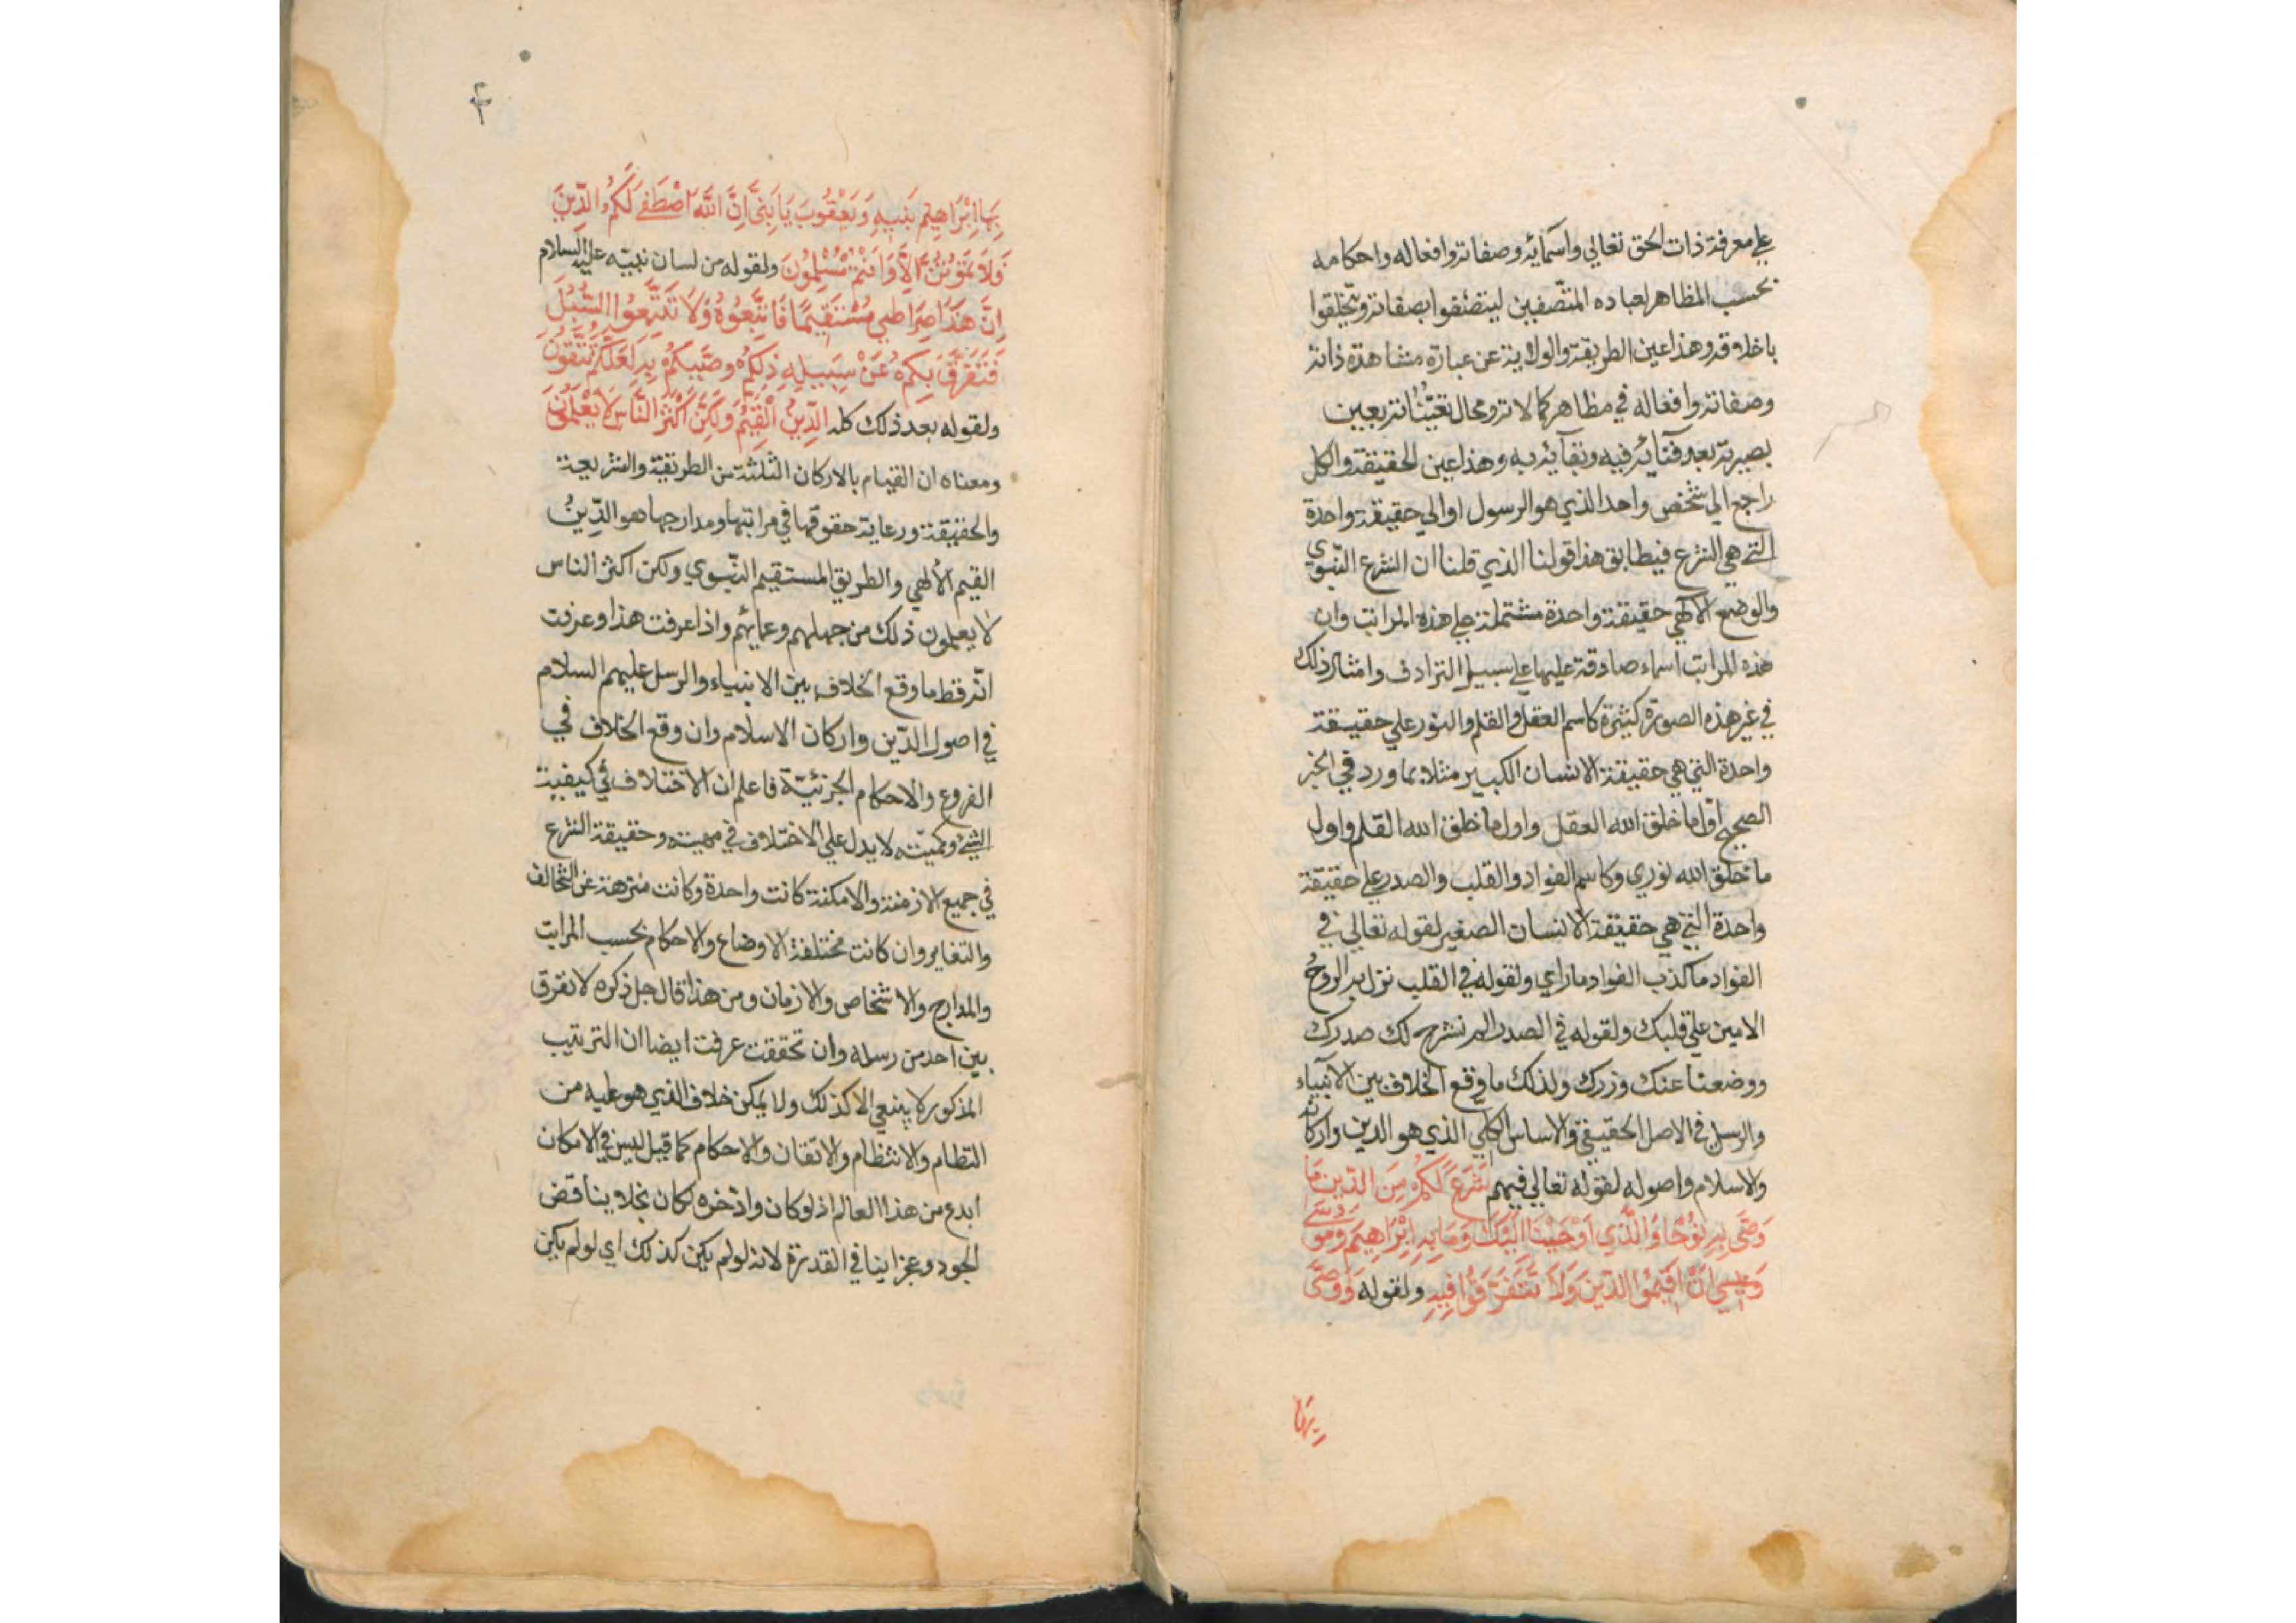 علي معرفة ذات الحق تعالي واسمائه وصفاته وافعاله واحكامه
بحسب المظاهر لعباده المتصفين ليتصفوا بصفاته ويتخلقوا
باخلاقه وهذا عين الطريقة والولاية عن عبارة مشاهدة ذاته
وصفاته وافعاله في مظاهر كمالاته ومحال تعيناته بعين
بصيرته بعد فنائه فيه وبقائه به وهذا عين الحقيقة والكل
راجع الي شخص واحد الذي هو الرسول او الي حقيقة واحدة
التي هي الشرع فيطابق هذا قولنا الذي قلنا ان الشرع النبوي
والوضع الالهي حقيقة واحدة مشتملة علي هذه المراتب وان
هذه المراتب اسماء صادقة عليها علي سبيل الترادف وامثال ذلك
في غير هذه الصورة كثيرة كاسم العقل والقلم والنور علي حقيقة
واحدة التي هي حقيقة الانسان الكبير مثلا بما ورد في الخبر
الصحيح اول ما خلق الله العقل واول ما خلق الله القلم واول
ما خلق الله نوري وكاسم الفواد والقلب والصدر علي حقيقة
واحدة التي هي حقيقة الانسان الصغير لقوله تعالي في
الفواد ما كذب الفواد ما راي ولقوله في القلب نزل به الروح
الامين علي قلبك ولقوله في الصدر الم نشرح لك صدرك
ووضعنا عنك وزرك ولذلك ما وقع الخلاف بين الانبياء
والرسل في الاصل الحقيقي والاساس الكلي الذي هو الدين واركانه
والاسلام واصوله لقوله تعالي فيهم شَرَعَ لَكُمْ مِنَ الدِّينِ مَا
وَصَّى بِهِ نُوْحًا وَالَّذِي اَوْحَيْنَا اِلَيْكَ وَمَا بِهِ اِبْرَاهِيمَ وَمُوسَى
وَعِيسَي اَنْ اَقِيمُوا الدِّينَ وَلَا تَتَفَرَّقُوا فِيهِ ولقوله وَوَصَّى
بِهَا
بِهَا اِبْرَاهِيْمُ بَنِيهِ وَيَعْقُوبَ يَا بَنِيَّ اِنَّ اللَّهَ اصْطَفَى لَكُمُ الدِّينَ
فَلَا تَمُوْتُنَّ اِلَّا وَاَنْتُمْ مُسْلِمُونَ ولقوله من لسان نبيّه عليه السلام
اِنَّ هَذَا صِرَاطِي مُسْتَقِيمًا فَاتَّبِعُوهُ وَلَا تَتَّبِعُوا السُّبُلَ
فَتَفَرَّقَ بِكُمْ عَنْ سَبِيلِهِ ذَلِكُمْ وَصَّيكُمْ بِهِ لَعَلَّكُمْ تَتَّقُونَ
ولقوله بعد ذلك كله الدِّينُ الْقَيِّمُ وَلَكِنَّ اَكْثَرَ النَّاسِ لَا يَعْلَمُونَ
ومعناه ان القيام بالاركان الثلثة من الطريقة والشريعة
والحقيقة ورعاية حقوقها في مراتبها ومدارجها هو الدِّينُ
القيم الالهي والطريق المستقيم النّبوي ولكن اكثر الناس
لا يعلمون ذلك من جهلهم وعمائهم واذا عرفت هذا وعرفت
انّه قط ما وقع الخلاف بين الانبياء والرسل عليهم السلام
في اصول الدّين واركان الاسلام وان وقع الخلاف في
الفروع والاحكام الجزئيّة فاعلم ان الاختلاف في كيفية
الشيء وكميته لا يدل علي الاختلاف في مهيته وحقيقة الشرع
في جميع الازمنة والامكنة كانت واحدة وكانت منزهة عن التخالف
والتغاير وان كانت مختلفة الاوضاع والاحكام بحسب المراتب
والمدارج والاشخاص والازمان ومن هذا قال جل ذكره لا نفرق
بين احد من رسله وان تحققت عرفت ايضا ان الترتيب
المذكور لا ينبغي الا كذلك ولا يمكن خلاف الذي هو عليه من
النظام والانتظام والاتقان والاحكام كما قيل ليس في الامكان
ابدع من هذا العالم اذ لو كان وادّخره لكان بخلا يناقض
الجود وعجزا ينافي القدرة لانه لو لم يكن كذلك اي لو لم يكن